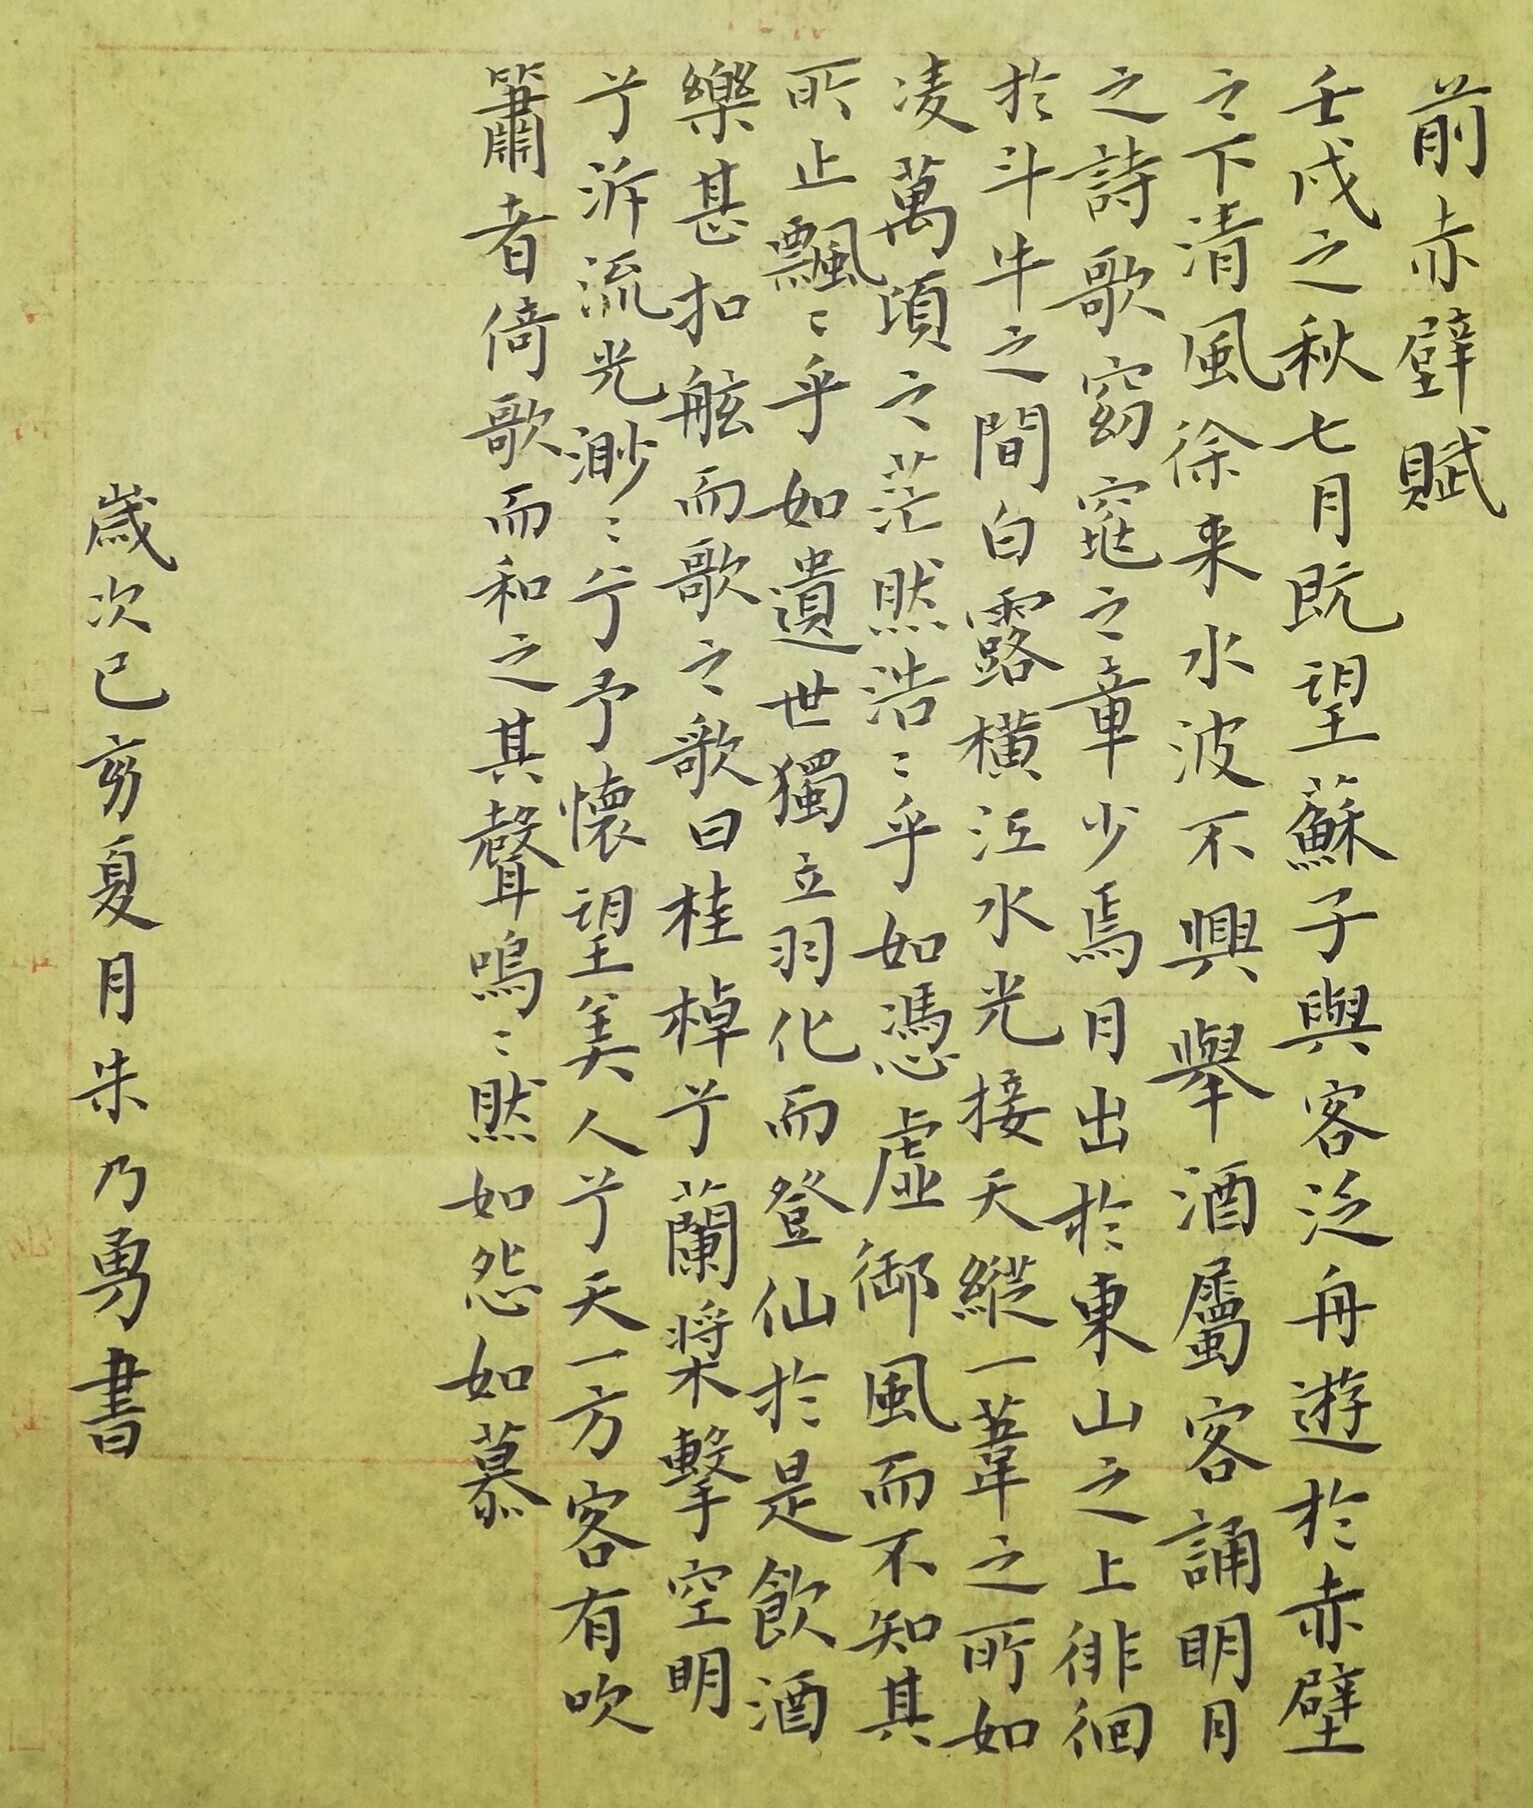 前赤壁賦
壬戌之秋七月既望蘇子與客泛舟遊於赤壁
之下清風徐来水波不興舉酒屬客誦明月
之詩歌窈窕之章少焉月出於東山之上徘徊
於斗牛之間白露橫江水光接天縱一葦之所如
凌萬頃之茫然浩〻乎如馮虛御風而不知其
所止飄〻乎如遺世獨立羽化而登仙於是飲酒
樂甚扣舷而歌之歌曰桂棹兮蘭槳擊空明
兮泝流光渺〻兮予懷望美人兮天一方客有吹
簫者倚歌而和之其聲嗚〻然如怨如慕
歲次己亥夏月朱乃勇書